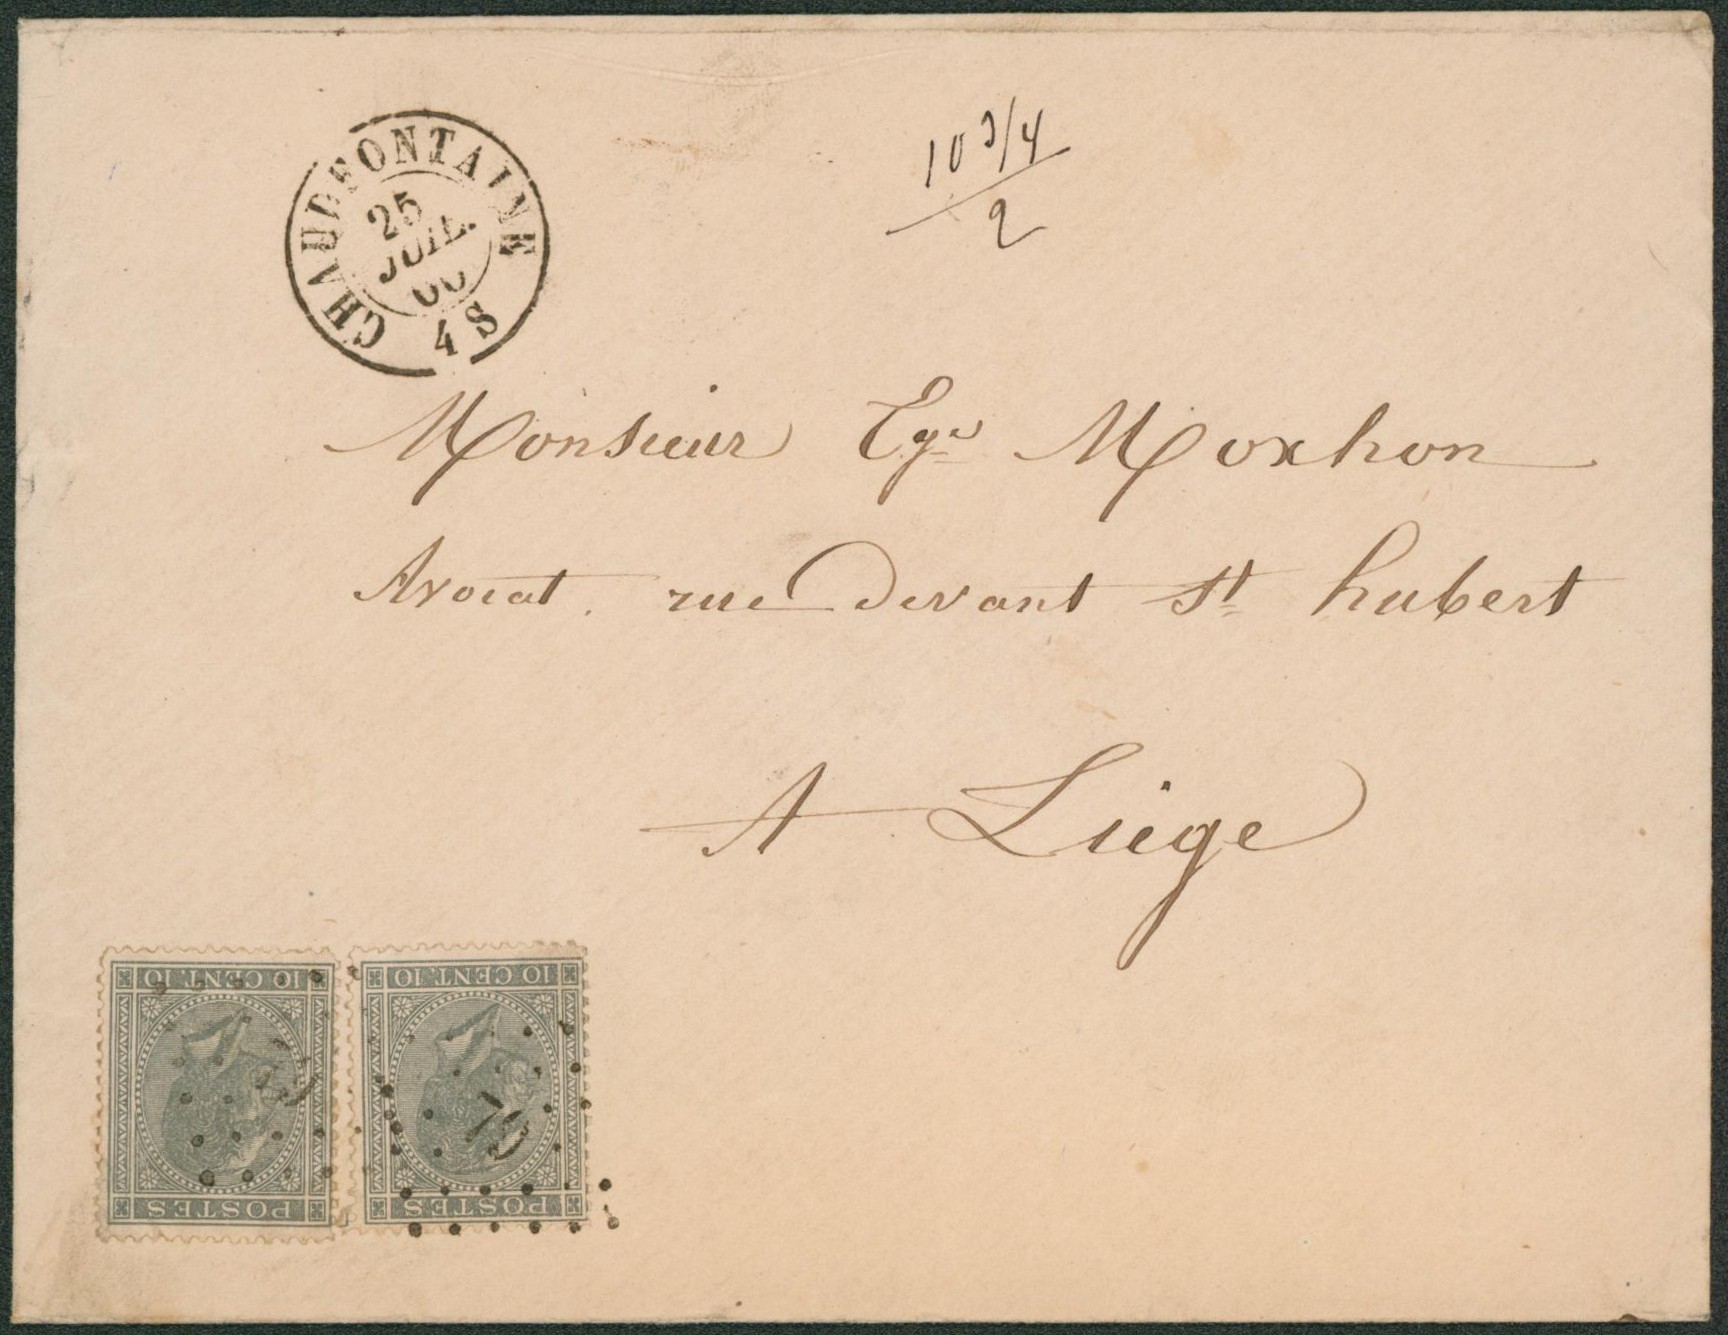 CHAUDFONTAINE
25
JUIL.
66
4 S
10 3/4
2
Monsieur Egne Moxhon
Avocat. rue Devant St hubert
A Liége
10 CENT. 10
POSTES
10 CENT. 10
79
POSTES